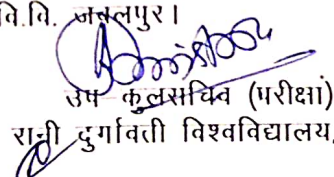 वि.वि. जबलपुर।
उप कुलसचिव (परीक्षा)
रानी दुर्गावती विश्वविद्यालय,